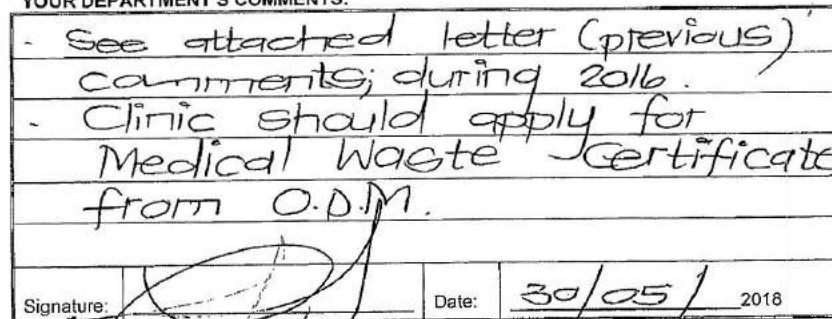 YOUR DEPARTMENT'S COMMENTS:
- See attached letter (previous)
comments; during 2016.
- Clinic should apply for
Medical Waste Certificate
from O.D.M.
Signature: Date: 30/05/ 2018